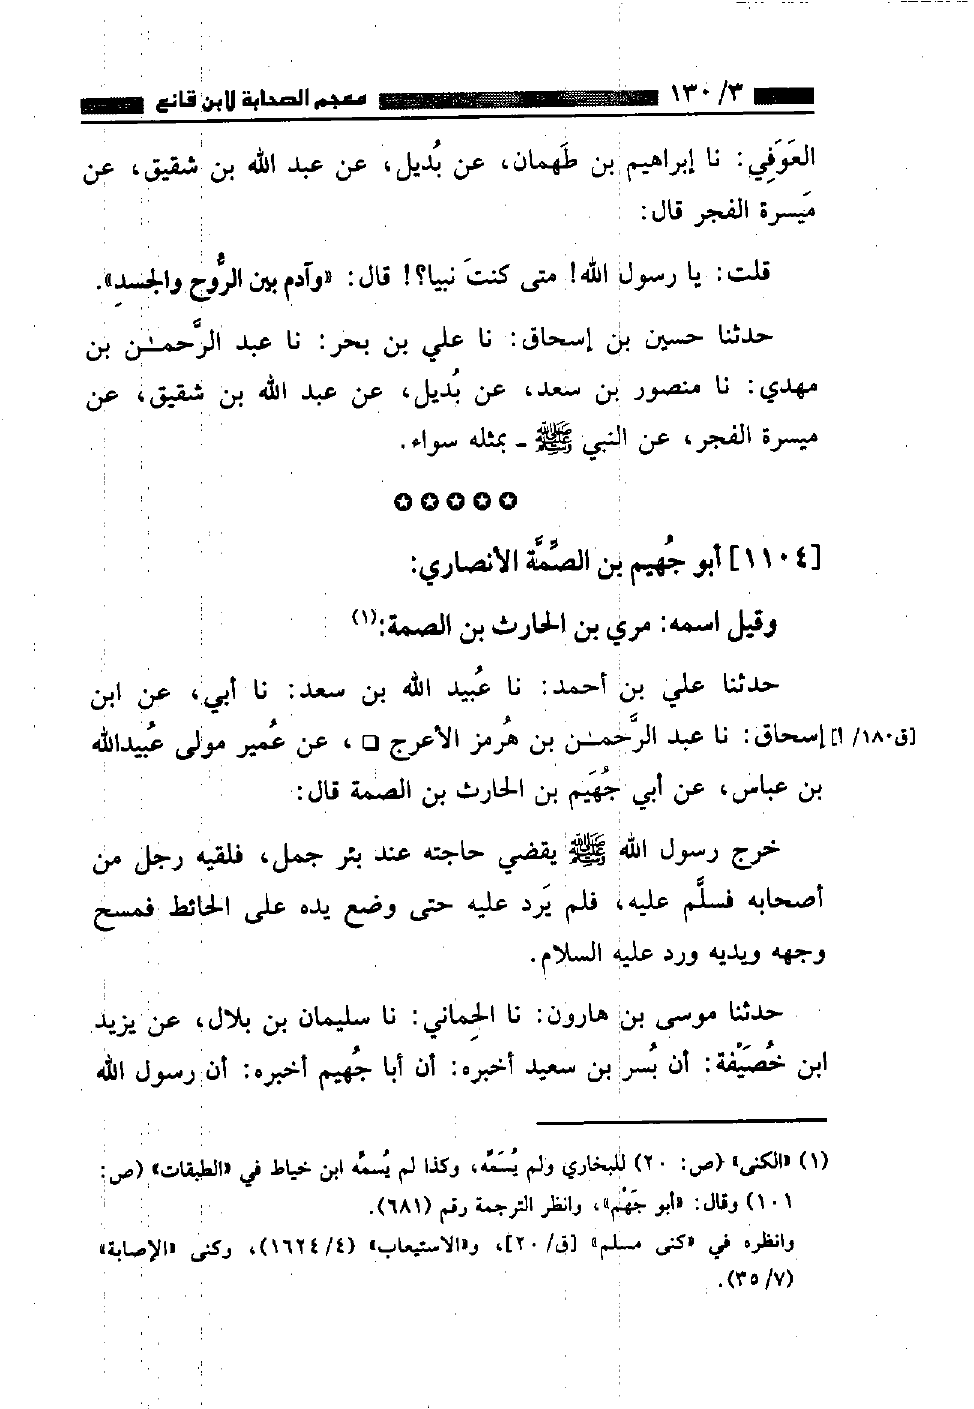 ٣/ ١٣٠ معجم الصحابة لابن قانع
العَوَفِي: نا إبراهيم بن طَهمان، عن بُديل، عن عبد الله بن شقيق، عن
مَيسرة الفجر قال:
قلت: يا رسول الله! متى كنتَ نبيا؟! قال: «وآدم بين الرُّوح والجسدِ».
حدثنا حسين بن إسحاق: نا علي بن بحر: نا عبد الرَّحمـٰن بن
مهدي: نا منصور بن سعد، عن بُديل، عن عبد الله بن شقيق، عن
ميسرة الفجر، عن النبي ﷺ ـ بمثله سواء.
✪ ✪ ✪ ✪ ✪
[١١٠٤] أبو جُهيم بن الصِّمَّة الأنصاري:
وقيل اسمه: مري بن الحارث بن الصمة:(١)
حدثنا علي بن أحمد: نا عُبيد الله بن سعد: نا أبي، عن ابن
[ق١٨٠/ أ] إسحاق: نا عبد الرَّحمـٰن بن هُرمز الأعرج □ ، عن عُمير مولى عُبيدالله
بن عباس، عن أبي جُهَيم بن الحارث بن الصمة قال:
خرج رسول الله ﷺ يقضي حاجته عند بئر جمل، فلقيه رجل من
أصحابه فسلَّم عليه، فلم يَرد عليه حتى وضع يده على الحائط فمسح
وجهه ويديه ورد عليه السلام.
حدثنا موسى بن هارون: نا الحِماني: نا سليمان بن بلال، عن يزيد
ابن خُصَيْفة: أن بُسر بن سعيد أخبره: أن أبا جُهيم أخبره: أن رسول الله
(١) «الكنى» (ص: ٢٠) للبخاري ولم يُسَمِّه، وكذا لم يُسمِّه ابن خياط في «الطبقات» (ص:
١٠١) وقال: «أبو جَهْم»، وانظر الترجمة رقم (٦٨١).
وانظره في «كنى مسلم» [ق/ ٢٠]، و«الاستيعاب» (٤/ ١٦٢٤)، وكنى «الإصابة»
(٧/ ٣٥).